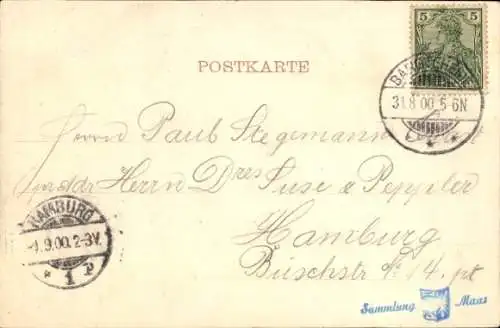 5 5
POSTKARTE
31.8.00.5-6N
Herrn Paul Stegemann
Herrn Dres Suse & Peppler
HAMBURG
1.9.00.2-3V.
* 1 P
Hamburg
Büschstr. No. 14. pt
Sammlung Maas